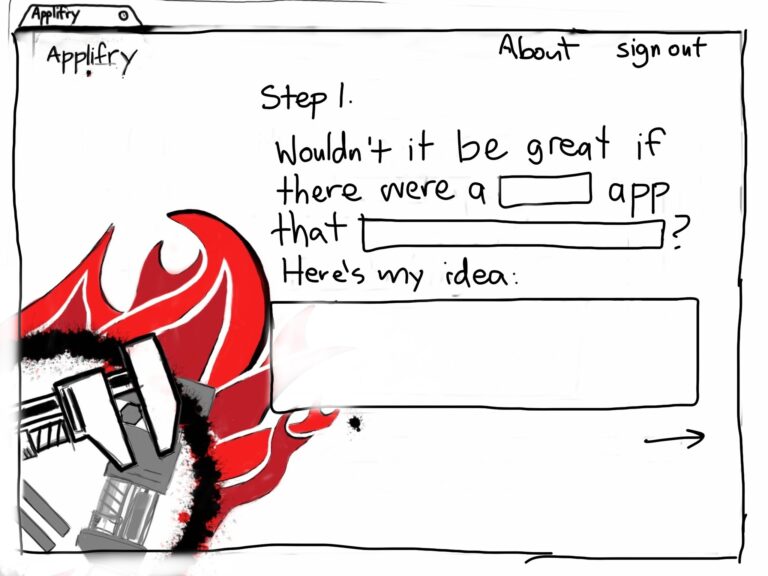 Applifry
Applifry
About sign out
Step 1.
Wouldn't it be great if
there were a app
that ?
Here's my idea: